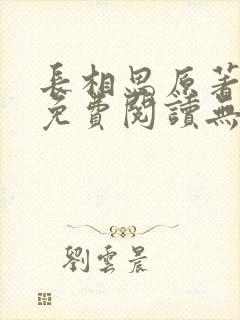 長相思原著
免費閱讀無
劉雲晨